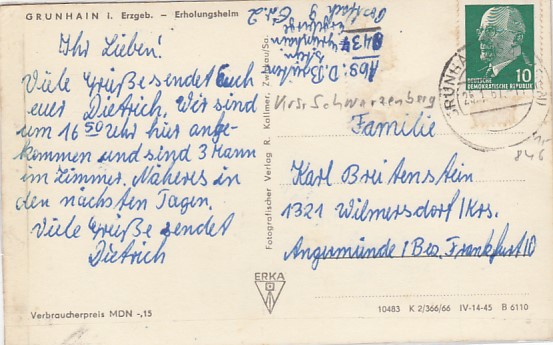 GRUNHAIN i. Erzgeb. – Erholungsheim
Ihr Lieben!
Viele Grüße sendet Euch
euer Dietrich. Wir sind
um 16 50 Uhr hier ange-
kommen und sind 3 Mann
im Zimmer. Näheres in
den nächsten Tagen.
Viele Grüße sendet
Dietrich
Verbraucherpreis MDN -,15
Fotografischer Verlag R. Kallmer, Zwickau/Sa.
ERKA
Abs: D.
9437
Grünhain
Krs. Schwarzenberg
DEUTSCHE
DEMOKRATISCHE REPUBLIK
10
GRÜNHA
Familie
846
Karl Breitenstein
1321 Wilmersdorf/Krs.
Angermünde / Bez. Frankfurt/O
10483 K 2/366/66 IV-14-45 B 6110